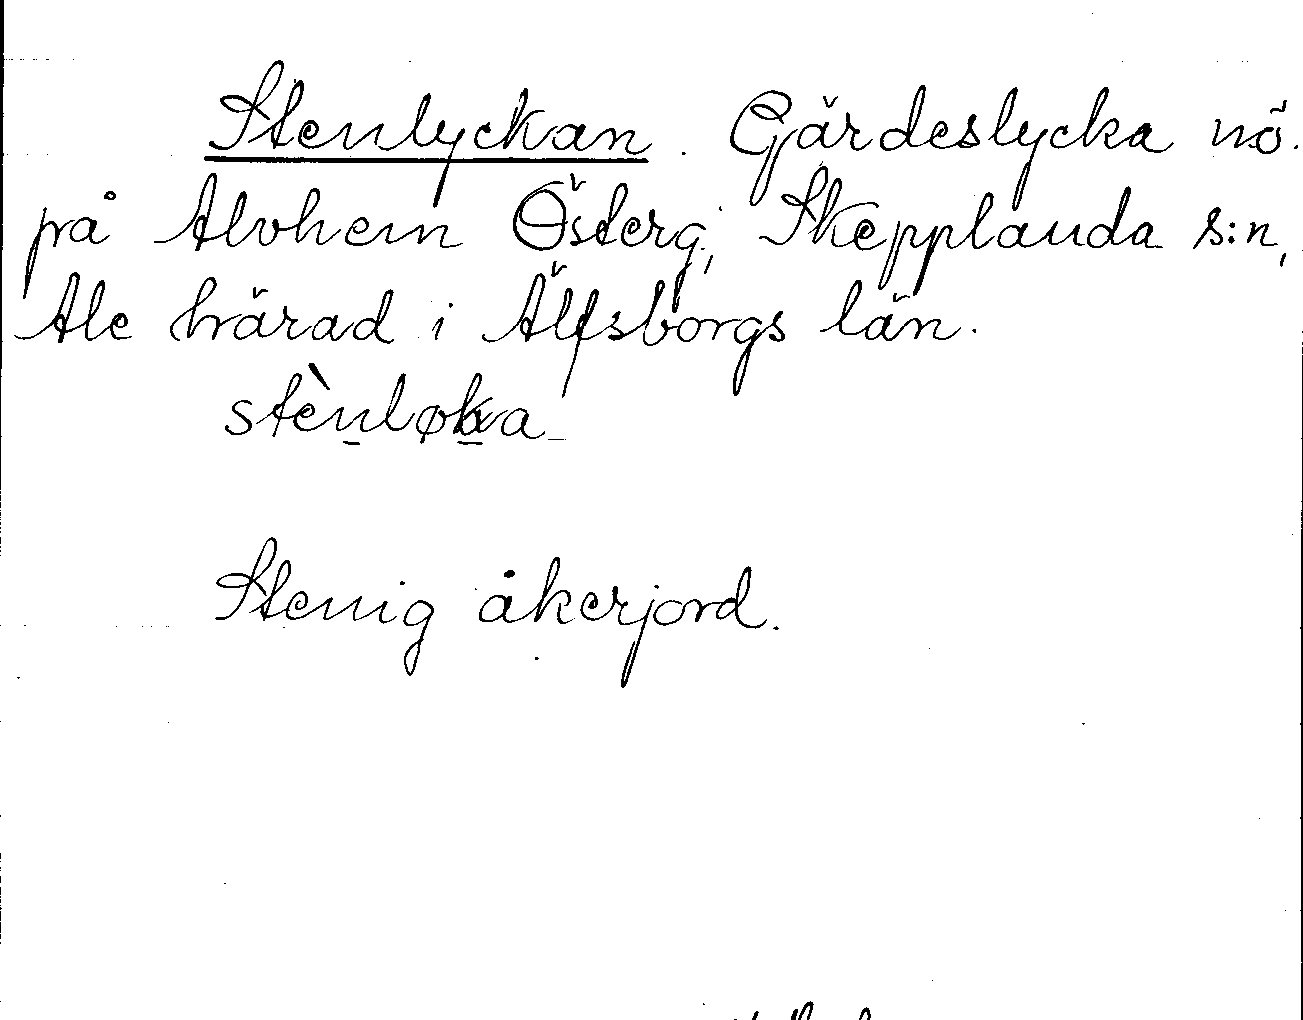 Stenlyckan. Gärdeslycka nö.
på Alvhem Österg, Skepplanda s:n,
Ale härad i Älfsborgs län.
stènløka
Stenig åkerjord.